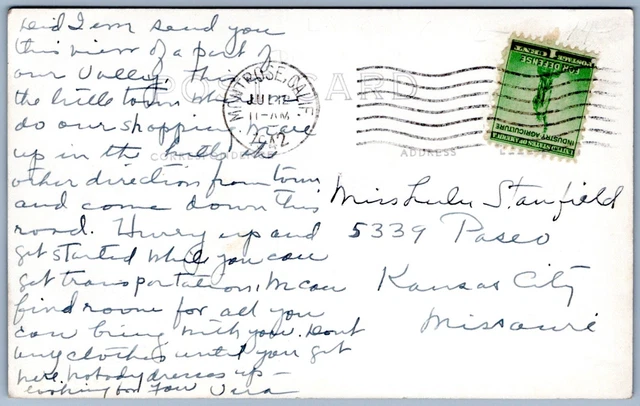 Kid I am send you
this view of a part of
our Valley. This
the little town wh
do our shopping. We are
up in the hills, the
other direction from town
and come down this
road. Hurry up and
get started while you can
get transportation. We can
find room for all you
can bring with you. Dont
buy clothes until you get
here. nobody dresses up -
looking for you Vera
POST CARD
CORRESPONDENCE
ADDRESS
MONTROSE, CALIF.
JUL
11-AM
1942
1 CENT 1
POSTAGE
FOR DEFENSE
INDUSTRY AGRICULTURE
UNITED STATES OF AMERICA
Miss Lulu Stanfield
5339 Paseo
Kansas City
Missouri